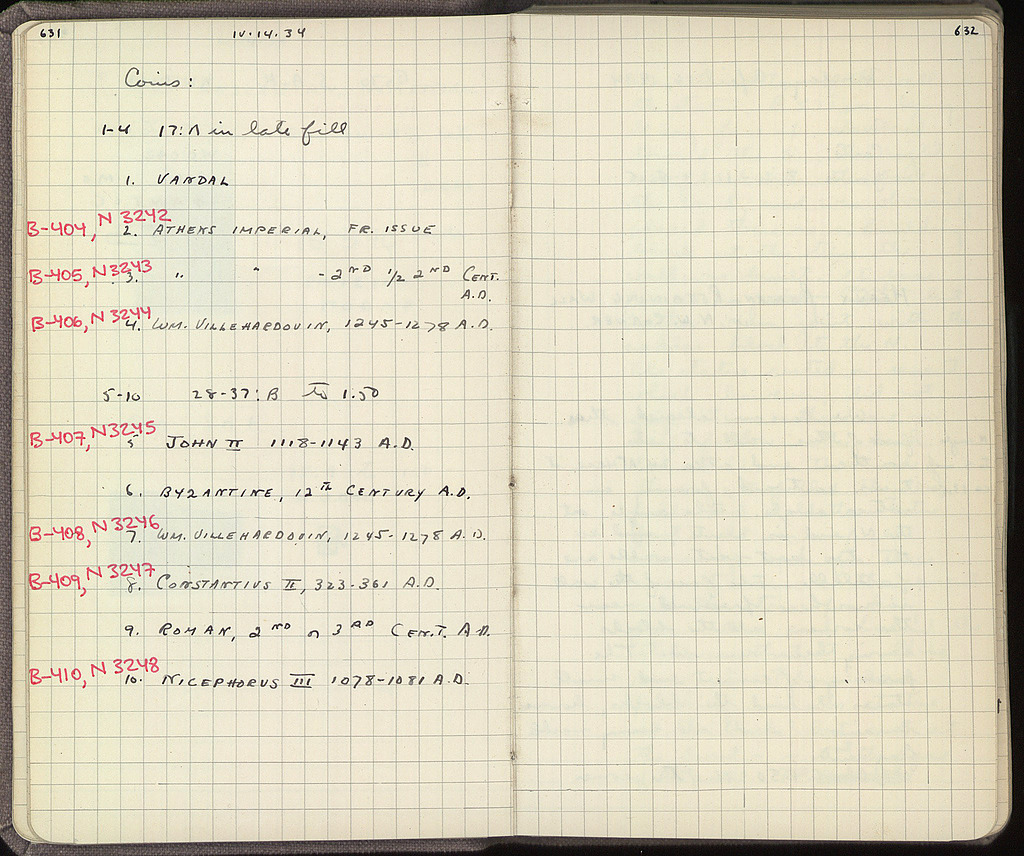 631 IV.14.34
632
Coins:
1-4 17:Λ in late fill
1. VANDAL
B-404, N 3242 2. ATHENS IMPERIAL, FR. ISSUE
B-405, N 3243 3. " " - 2ND 1/2 2ND CENT.
A.D.
B-406, N 3244 4. WM. VILLEHARDOUIN, 1245-1278 A.D.
5-10 28-37:B to 1.50
B-407, N 3245 5 JOHN II 1118-1143 A.D.
6. BYZANTINE, 12TH CENTURY A.D.
B-408, N 3246 7. WM. VILLEHARDOUIN, 1245-1278 A.D.
B-409, N 3247 8. CONSTANTIUS II, 323-361 A.D.
9. ROMAN, 2ND or 3RD CENT. A.D.
B-410, N 3248 10. NICEPHORUS III 1078-1081 A.D.